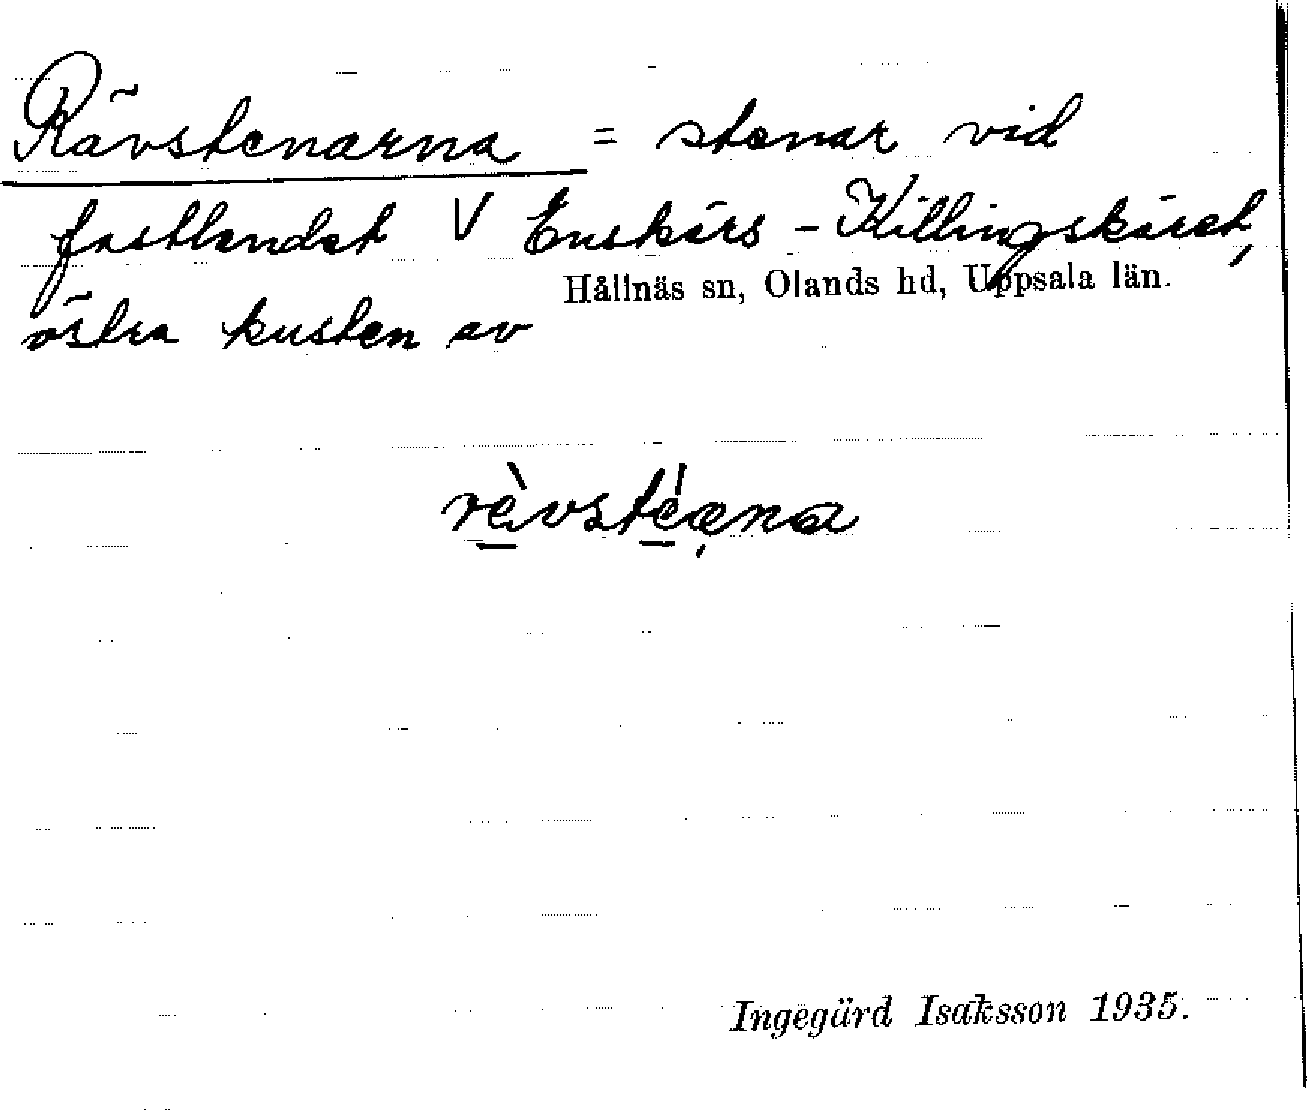 Rävstenarna = stenar vid
fastlandet V Enskärs-Killingskäret,
Hållnäs sn, Olands hd, Uppsala län.
östra kusten av
rè̱vsté̱ạna
Ingegärd Isaksson 1935.